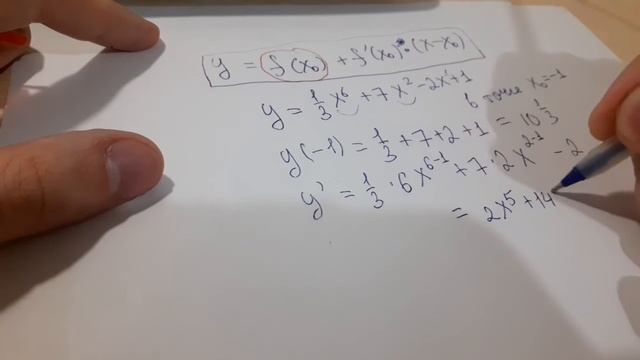 y = f(x₀) + f'(x₀)·(x-x₀)
y = 1/3 x⁶ + 7x² - 2x + 1 в точке x₀=-1
y(-1) = 1/3 + 7 + 2 + 1 = 10 1/3
y' = 1/3 · 6x⁶⁻¹ + 7·2x²⁻¹ - 2
= 2x⁵ + 14